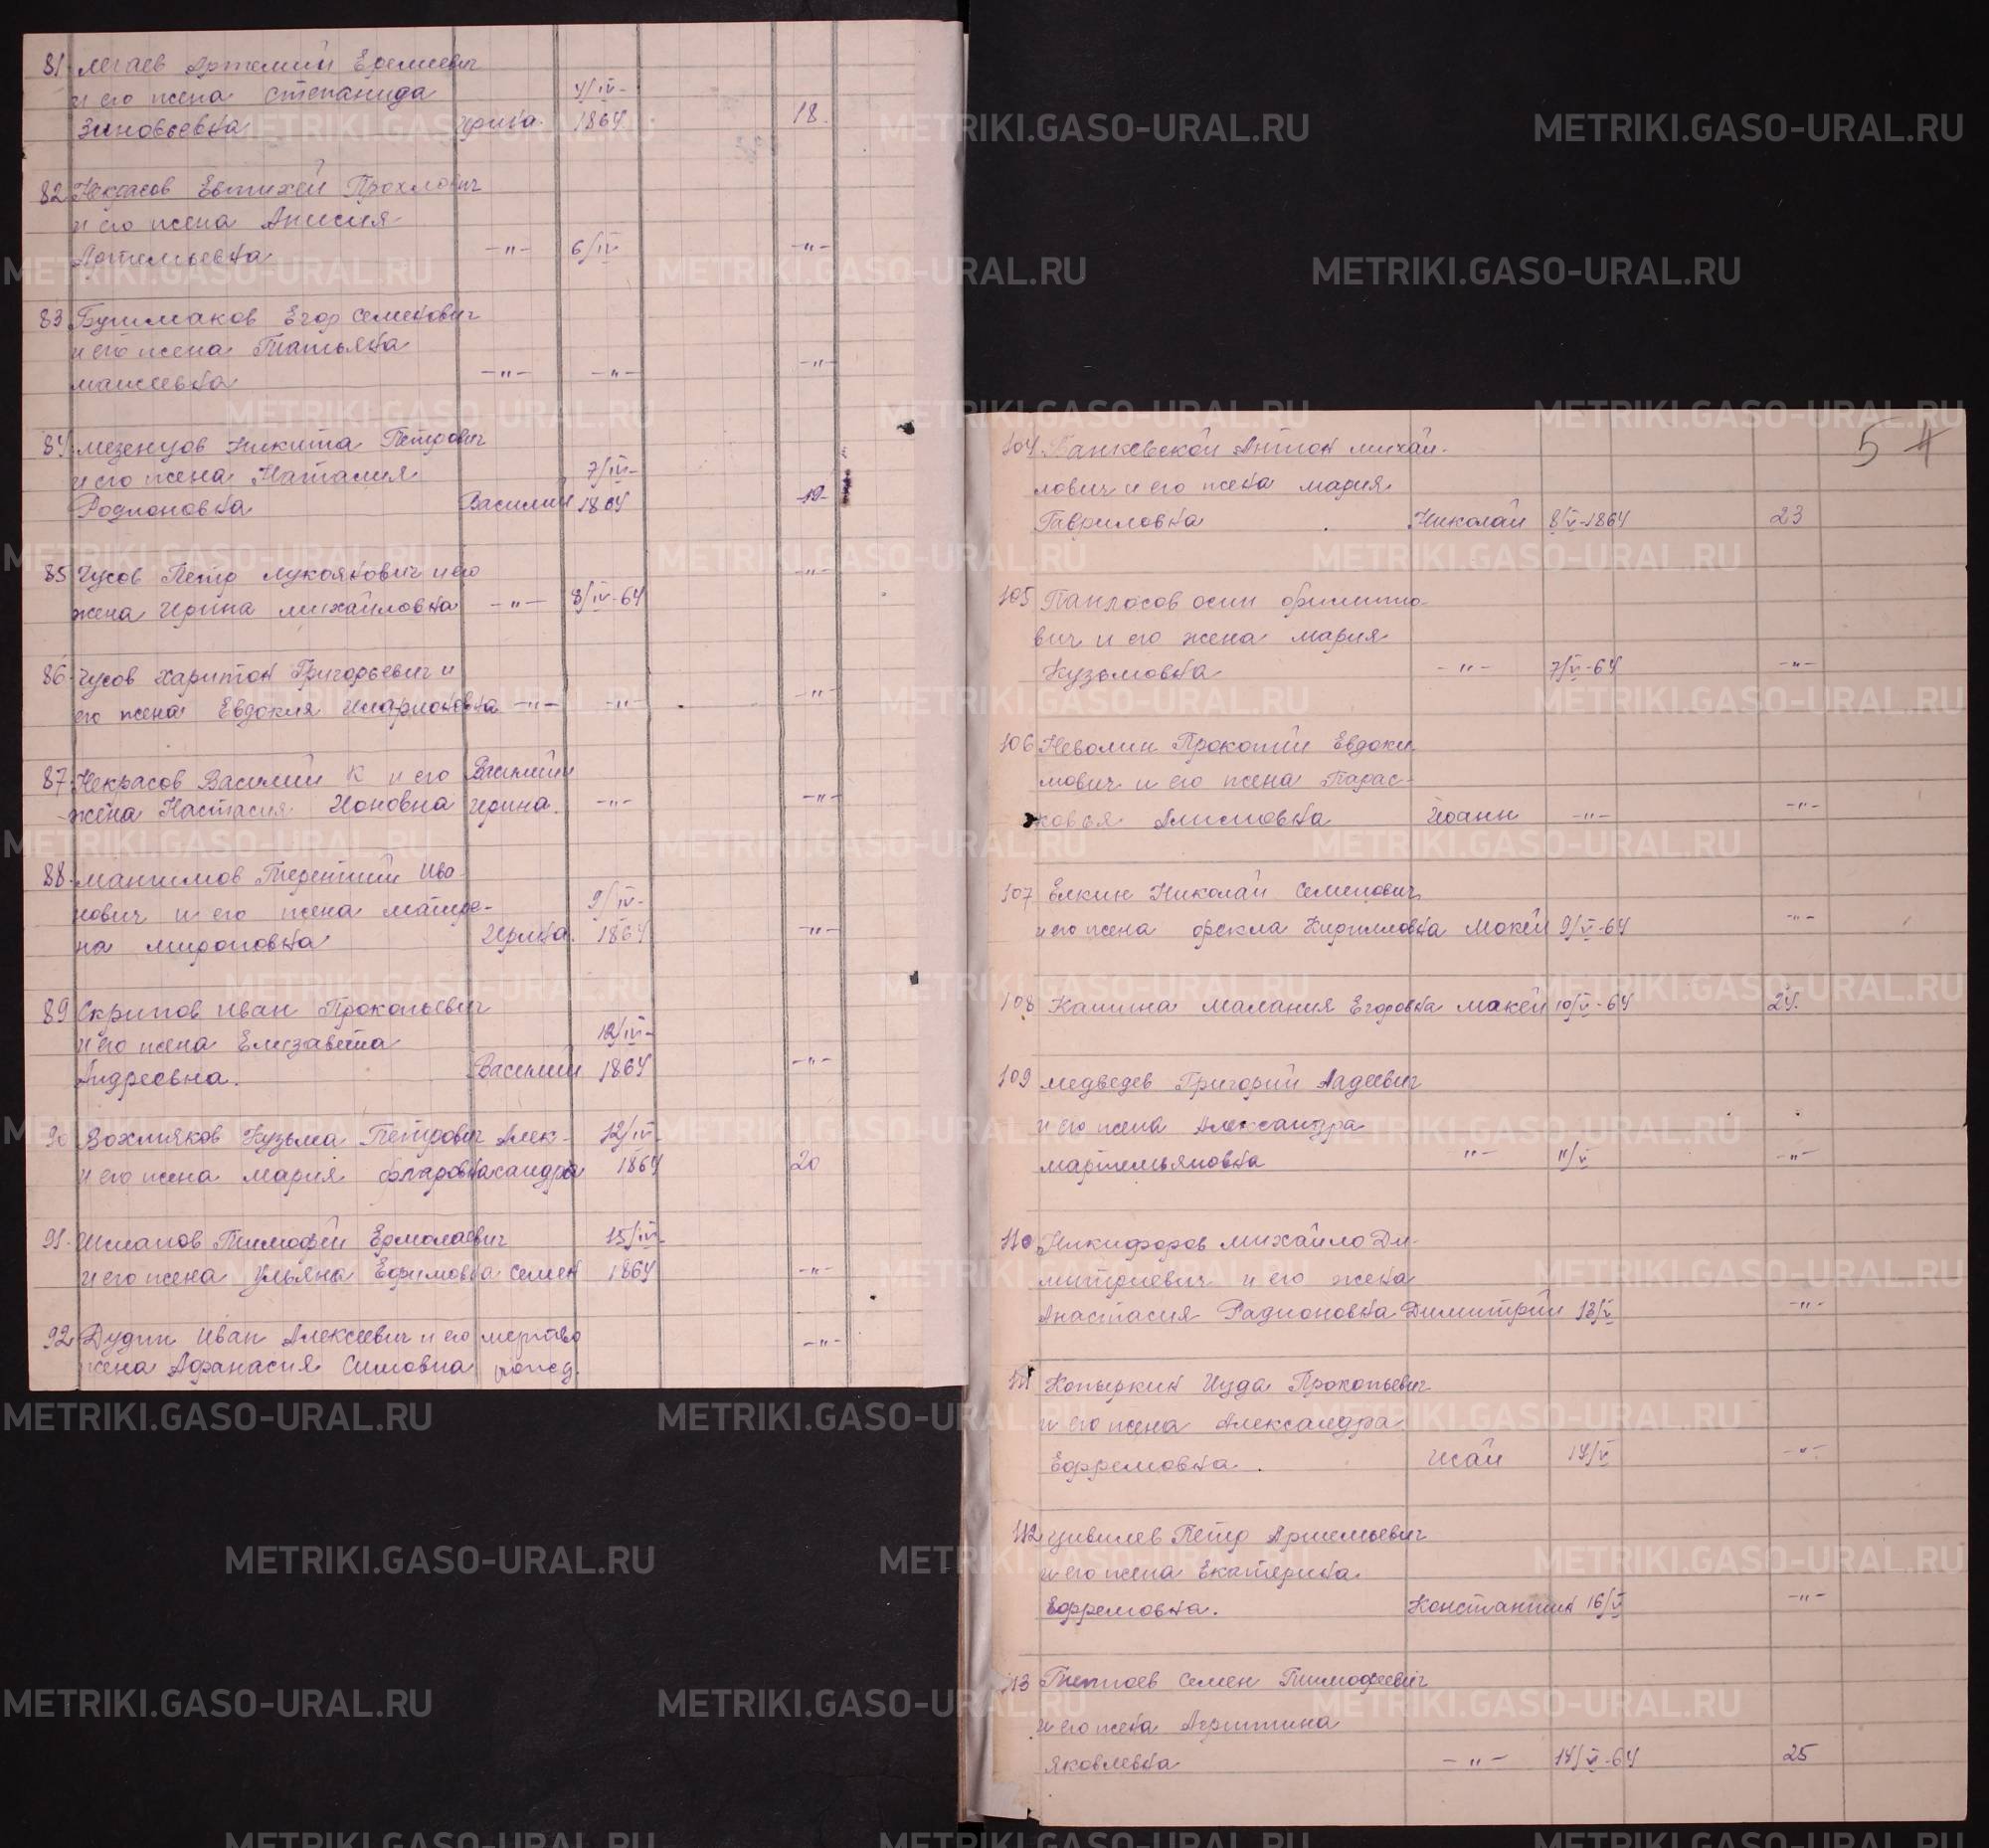 81. Легаев Артемий Еремеевич
и его жена Степанида 4/IV-
Зиновьевна Ирина. 1864 18.
82 Некрасов Евтихей Прохлович
и его жена Анисия
Артемьевна -"- 6/IV -"-
83 Бушмаков Егор Семенович
и его жена Татьяна
Маисеевна -"- -"- -"-
84. Мезенцов Никита Петрович
и его жена Наталия 7/IV-
Родионовна Василий 1864 19-
85 Чусов Петр Лукоянович и его -"-
жена Ирина Михайловна -"- 8/IV-64
86. Чусов Харитон Григорьевич и -"-
его жена Евдокия Иларионовна -"- -"-
87. Некрасов Василий К и его Василий
жена Настасия Ионовна Ирина. -"- -"-
88. Ива
нович и его жена Матре- 9/IV-
на Мироновна Ирина. 1864 -"-
89 Скрипов Иван Прокопьевич
и его жена Елизавета 12/IV-
Андреевна. Василий 1864 -"-
90 Вохмяков Кузьма Петрович Алек- 12/IV-
и его жена Мария сандра 1864 20
91. Тимофей Ермолаевич 15/IV-
и его жена Ульяна Ефимовна Семен 1864 -"-
92 Дудин Иван Алексеевич и его мертво -"-
жена Афанасия Симовна рожд.
5 4
104 Панкевской Антон Михай-
лович и его жена Мария
Гавриловна Николай 8/V-1864 23
105 Осип
вич и его жена Мария
Кузьмовна -"- 7/V-64 -"-
106 Неволин Прокопий Евдоки
мович и его жена Парас-
ковья Иоанн -"- -"-
107 Елкин Николай Семенович
и его жена Фекла Кирилловна Мокей 9/V-64 -"-
108 Калина Малания Егоровна Макей 10/V-64 24.
109 Медведев Григорий Авдеевич
и его жена Александра
Мартемьяновна "- 11/V -"-
110 Никифоров Михайло Ди-
митриевич и его жена
Анастасия Радионовна Димитрий 13/V -"-
111 Копыркин Иуда Прокопьевич
и его жена Александра
Ефремовна. Исай 14/V -"-
112 Цивилев Петр Артемьевич
и его жена Екатерина
Ефремовна. Константин 16/V -"-
113 Семен Тимофеевич
и его жена Агрипина
Яковлевна -"- 14/V-64 25
METRIKI.GASO-URAL.RU